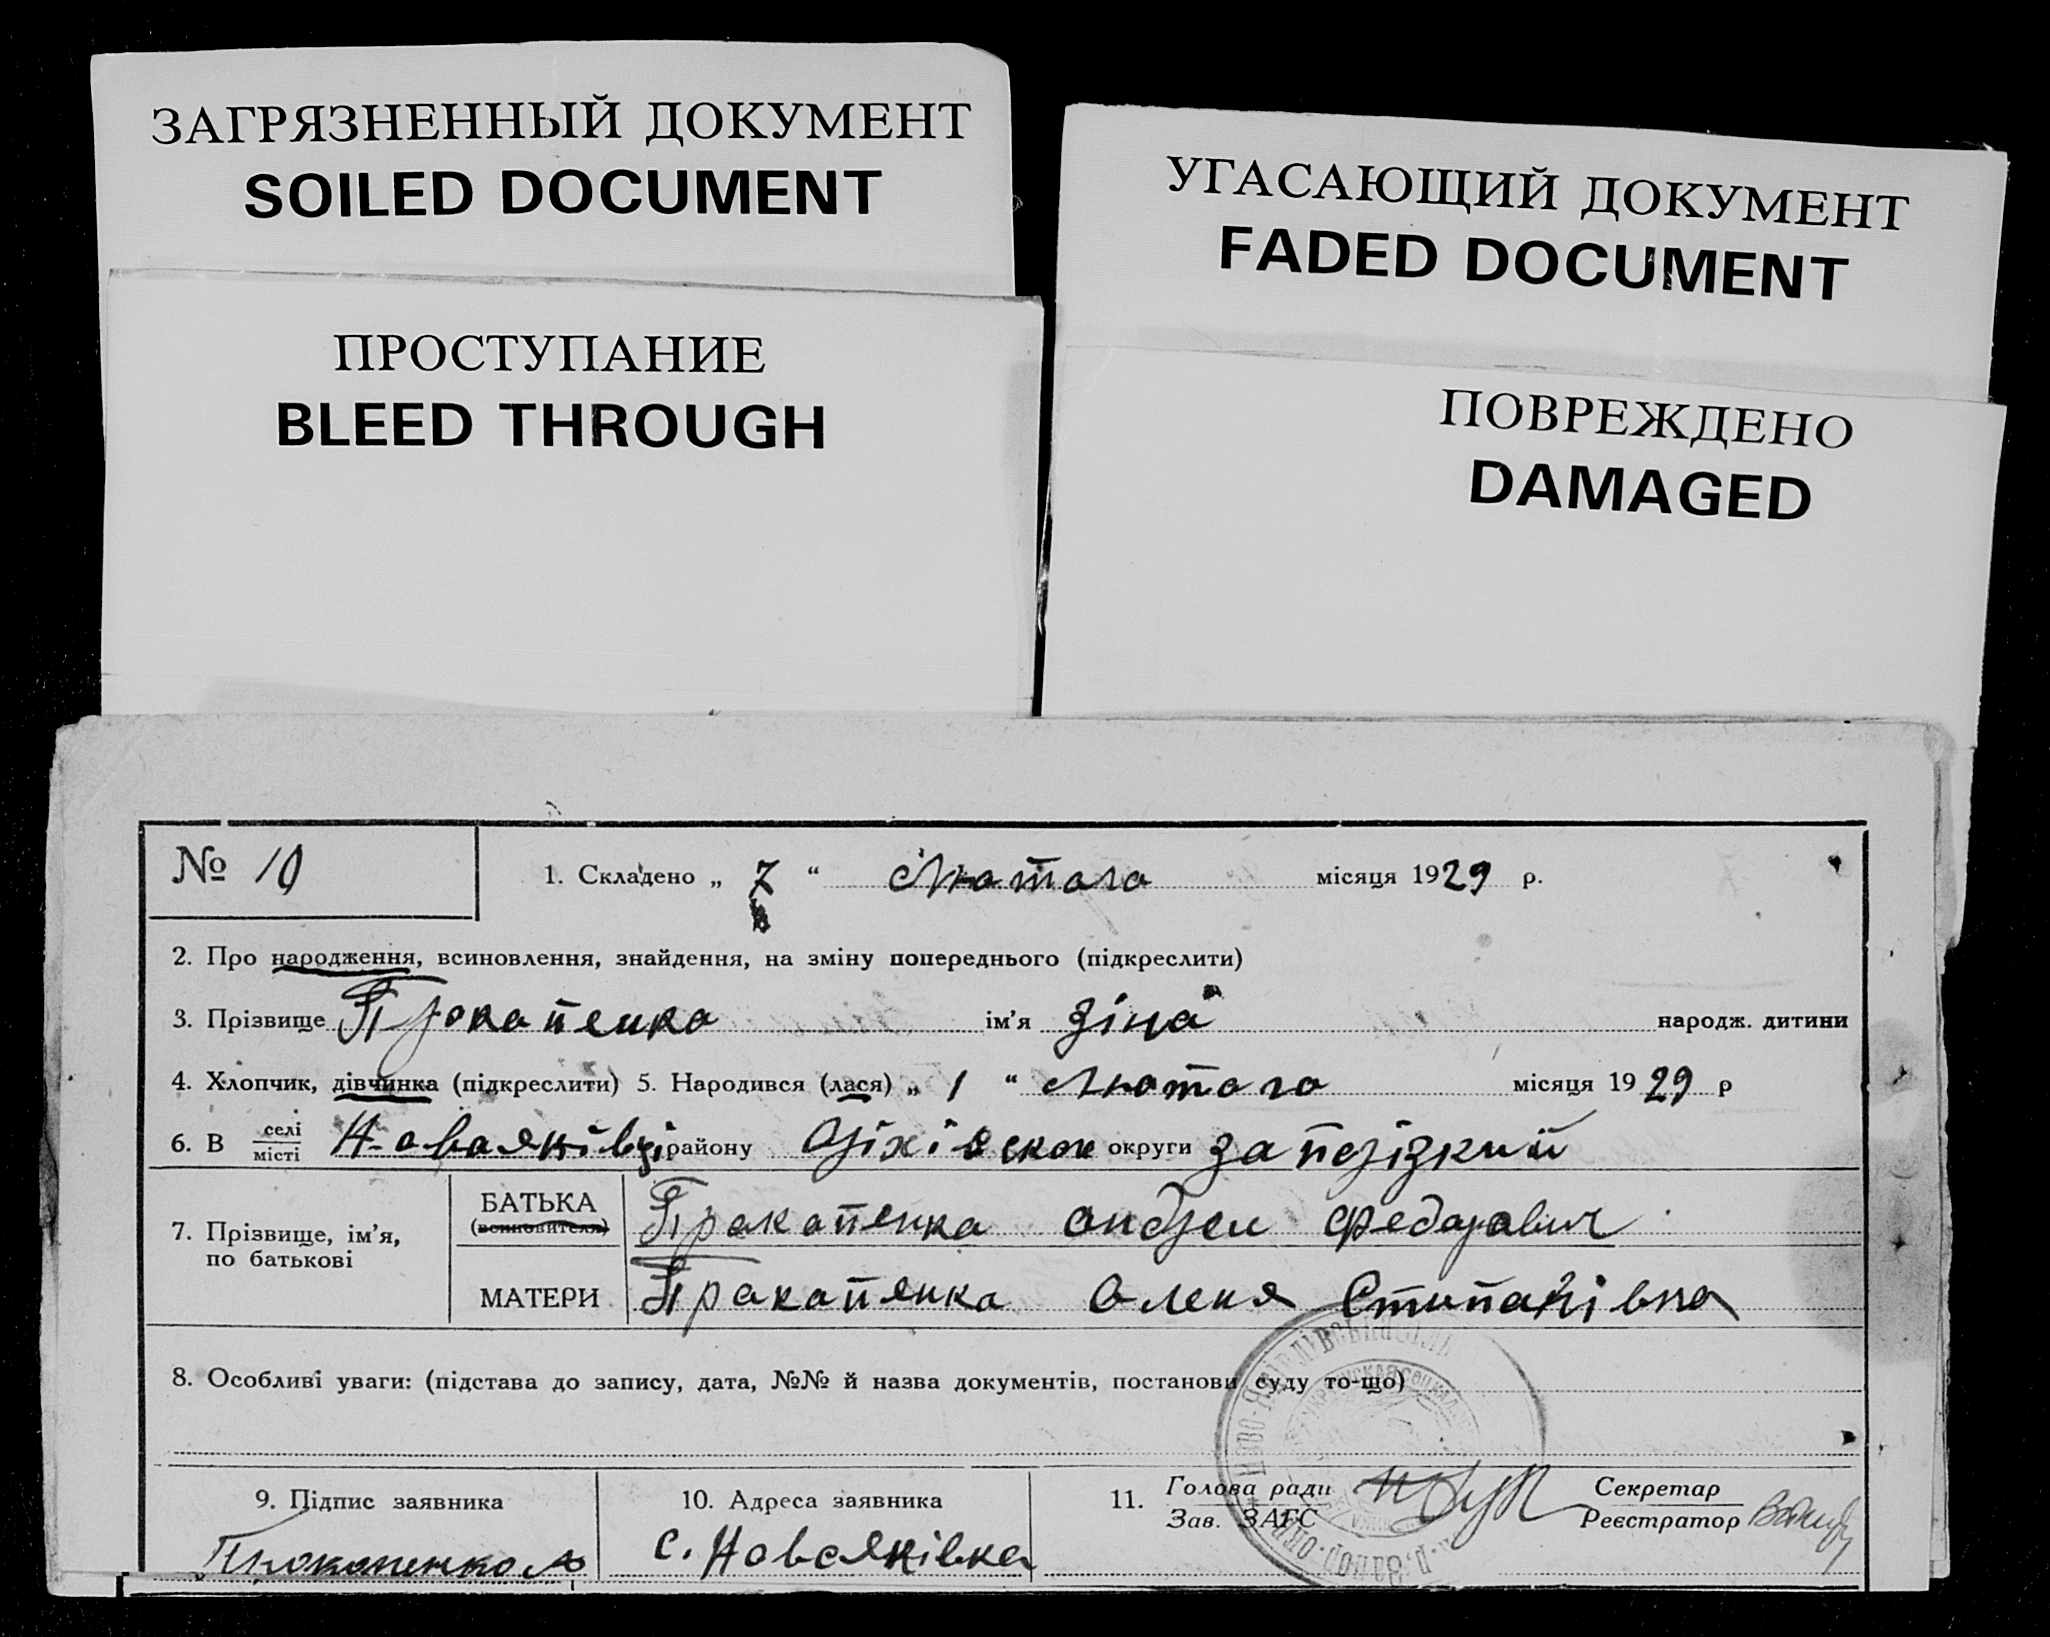 ЗАГРЯЗНЕННЫЙ ДОКУМЕНТ
SOILED DOCUMENT
УГАСАЮЩИЙ ДОКУМЕНТ
FADED DOCUMENT
ПРОСТУПАНИЕ
BLEED THROUGH
ПОВРЕЖДЕНО
DAMAGED
№ 10
1. Складено „ 7 “ Лютого місяця 1929 р.
2. Про народження, всиновлення, знайдення, на зміну попереднього (підкреслити)
3. Прізвище Прокапенко ім’я Зіна народж. дитини
4. Хлопчик, дівчинка (підкреслити) 5. Народився (лася) „ 1 “ Лютого місяця 1929 р
6. В селі місті Новаяківці району округи
7. Прізвище, ім’я, по батькові
БАТЬКА (всиновителя) Пракапенка Федарович
МАТЕРИ Пракапенка Олена
8. Особливі уваги: (підстава до запису, дата, №№ й назва документів, постанови суду то-що)
9. Підпис заявника
Прокопенко
10. Адреса заявника
с. Новояківка
11. Голова ради
Зав. ЗАГС
Секретар
Реєстратор